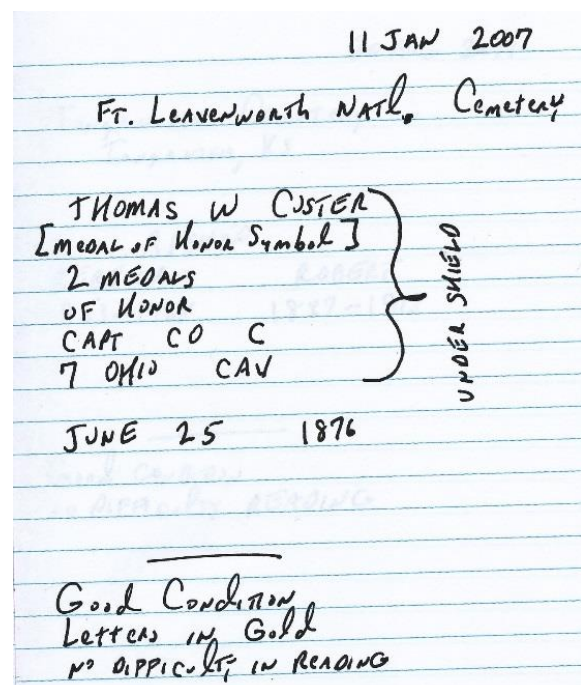 11 JAN 2007
FT. LEAVENWORTH NATL. Cemetery
THOMAS W CUSTER
[MEDAL OF HONOR Symbol]
2 MEDALS
OF HONOR
CAPT CO C
7 OHIO CAV
UNDER SHIELD
JUNE 25 1876
Good CONDITION
Letters IN Gold
NO DIFFICULTY IN READING